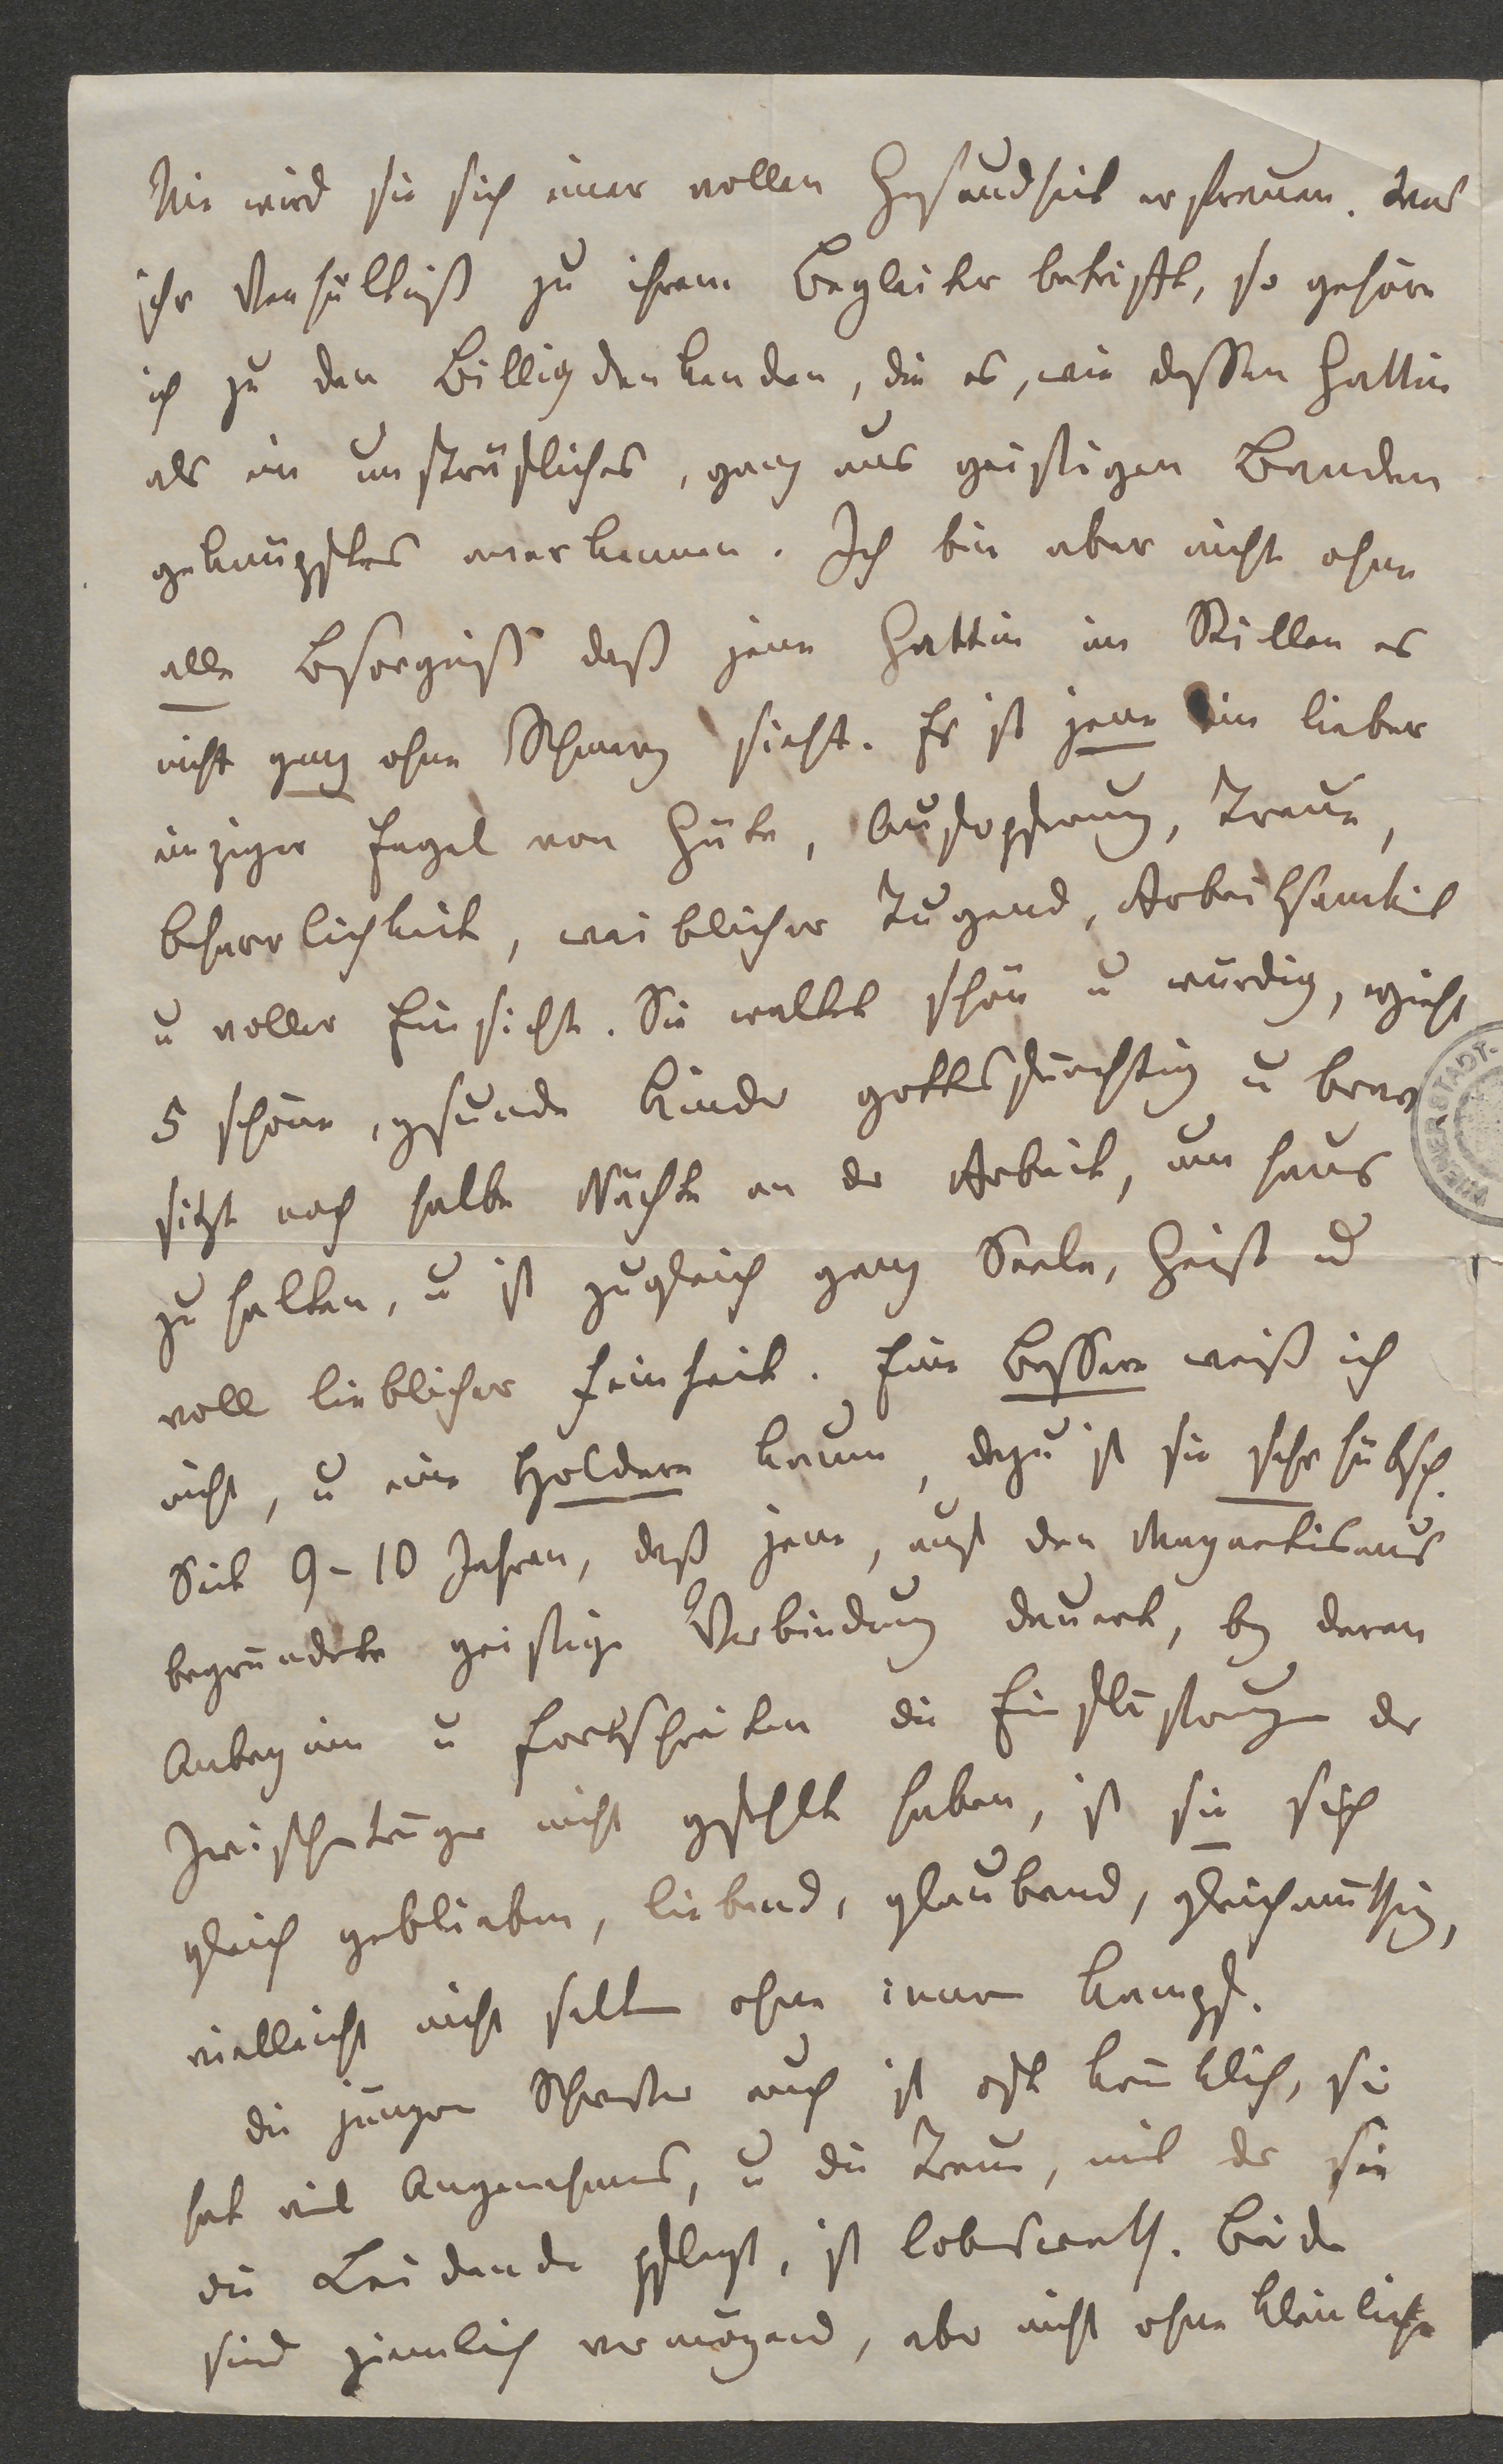 Nie wird sie sich einer vollen Gesundheit erfreuen. Was
ihr Verhältniß zu ihrem Begleiter betrifft, so gehöre
ich zu den Billigdenkenden, die es, wie dessen Gattin
als ein unsträfliches, ganz aus geistigen Banden
geknüpftes anerkennen. Ich bin aber nicht ohne
alle Besorgniß daß jene Gattin im Stillen es
nicht ganz ohne Schmerz sieht. Es ist jene ein lieber
einziger Engel von Güte, Aufopferung, Treue,
Beharrlichkeit, weiblicher Tugend, Arbeitsamkeit
u voller Einsicht. Sie waltet schön u würdig, erzieht
5 schöne, gesunde Kinder gottesfürchtig u brav
sitzt noch halbe Nächte an der Arbeit, um Haus
zu halten, u ist zugleich ganz Seele, Geist u
voll lieblicher Feinheit. Eine Bessere weiß ich
nicht, u eine Holdere kaum, dazu ist sie sehr hübsch.
Seit 9-10 Jahren, daß jene, auf den Magnetismus
begründete geistige Verbindung dauert, bey deren
Anbeginn u Fortschreiten die Einflüsterungen der
Zwischenträger nicht gefehlt haben, ist sie sich
gleich geblieben, liebend, glaubend, gleichmüthig,
vielleicht nicht selten ohne innern Kampf.
die jüngere Schwester auch ist oft kränklich, sie
hat viel Angenehmes, u die Treue, mit der sie
die Leidende pflegt, ist lobenswerth. Beide
sind ziemlich vermögend, aber nicht ohne kleinliche
WIENER STADT-